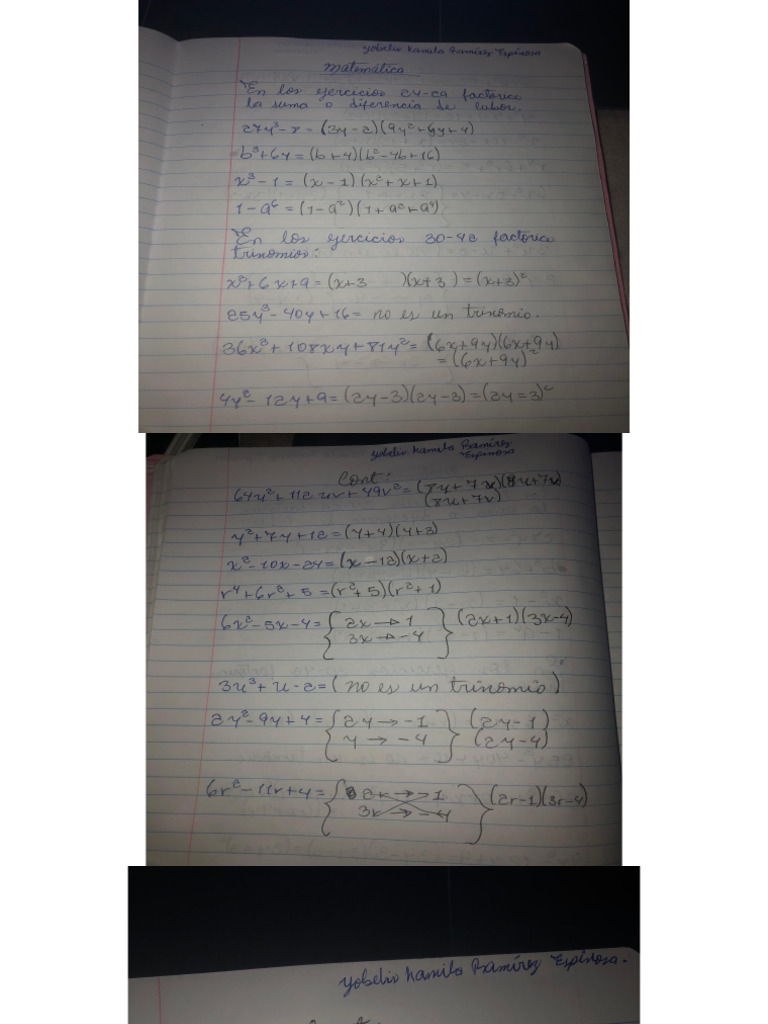 Yobelis Kamila Ramírez Espinosa
Matemática
En los ejercicios 24-29 factorice
la suma o diferencia de cubos.
27y³-x = (3y-2)(9y²+6y+4)
b³+64 = (b+4)(b²-4b+16)
x³-1 = (x-1)(x²+x+1)
1-a⁶ = (1-a²)(1+a²+a⁴)
En los ejercicios 30-42 factorice
trinomios:
x²+6x+9 = (x+3 )(x+3) = (x+3)²
25y³-40y+16 = no es un trinomio.
36x³+108xy+81y² = (6x+9y)(6x+9y)
= (6x+9y)²
4y²-12y+9 = (2y-3)(2y-3) = (2y=3)²
Yobelis Kamila Ramírez
Espinosa
Cont:
64u²+112uv+49v² = (8u+7v)(8u+7v)
(8u+7v)
y²+7y+12 = (y+4)(y+3)
x²-10x-24 = (x-12)(x+2)
r⁴+6r²+5 = (r²+5)(r²+1)
6x²-5x-4 = { 2x → 1 } (2x+1)(3x-4)
3x → -4
3u³+u-2 = (no es un trinomio)
2y²-9y+4 = { 2y → -1 } (2y-1)
y → -4 (2y-4)
6r²-11r+4 = { 2r → -1 } (2r-1)(3r-4)
3r → -4
Yobelis Kamila Ramírez Espinosa.